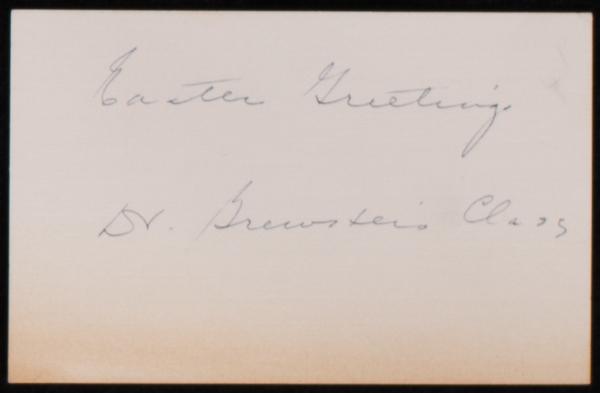 Easter Greeting.
Dr. Brewster's Class